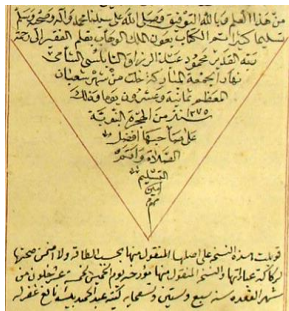 من هذا العلم وبالله التوفيق وصلى الله على سيدنا محمد وآله وصحبه وسلم
تسليما كثيرا تم الكتاب بعون الملك الوهاب بقلم الفقير الى رحمة
ربه القدير محمود عبد الرزاق النابلسي الشامي
نهار الجمعة المبارك من شهر شعبان
المعظم ثمانية وعشرون يوما وذلك
١٢٧٥ سنة من الهجرة النبوية
على صاحبها أفضل
الصلاة وأتم
التسليم
آمين
م
قوبلت هذه النسخة على اصلها المنقول منها بحسب الطاقة ولا
والنسخ المنقول منها مؤرخ يوم الخميس لخمسة عشر خلون من
شهر القعدة سنة سبع وستين وتسعماية كتبه عبد محمد غفر له